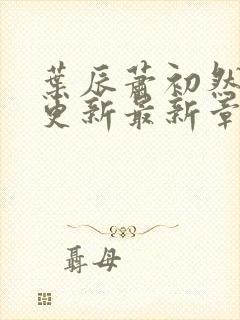 葉辰蕭初然
更新最新章
聶母